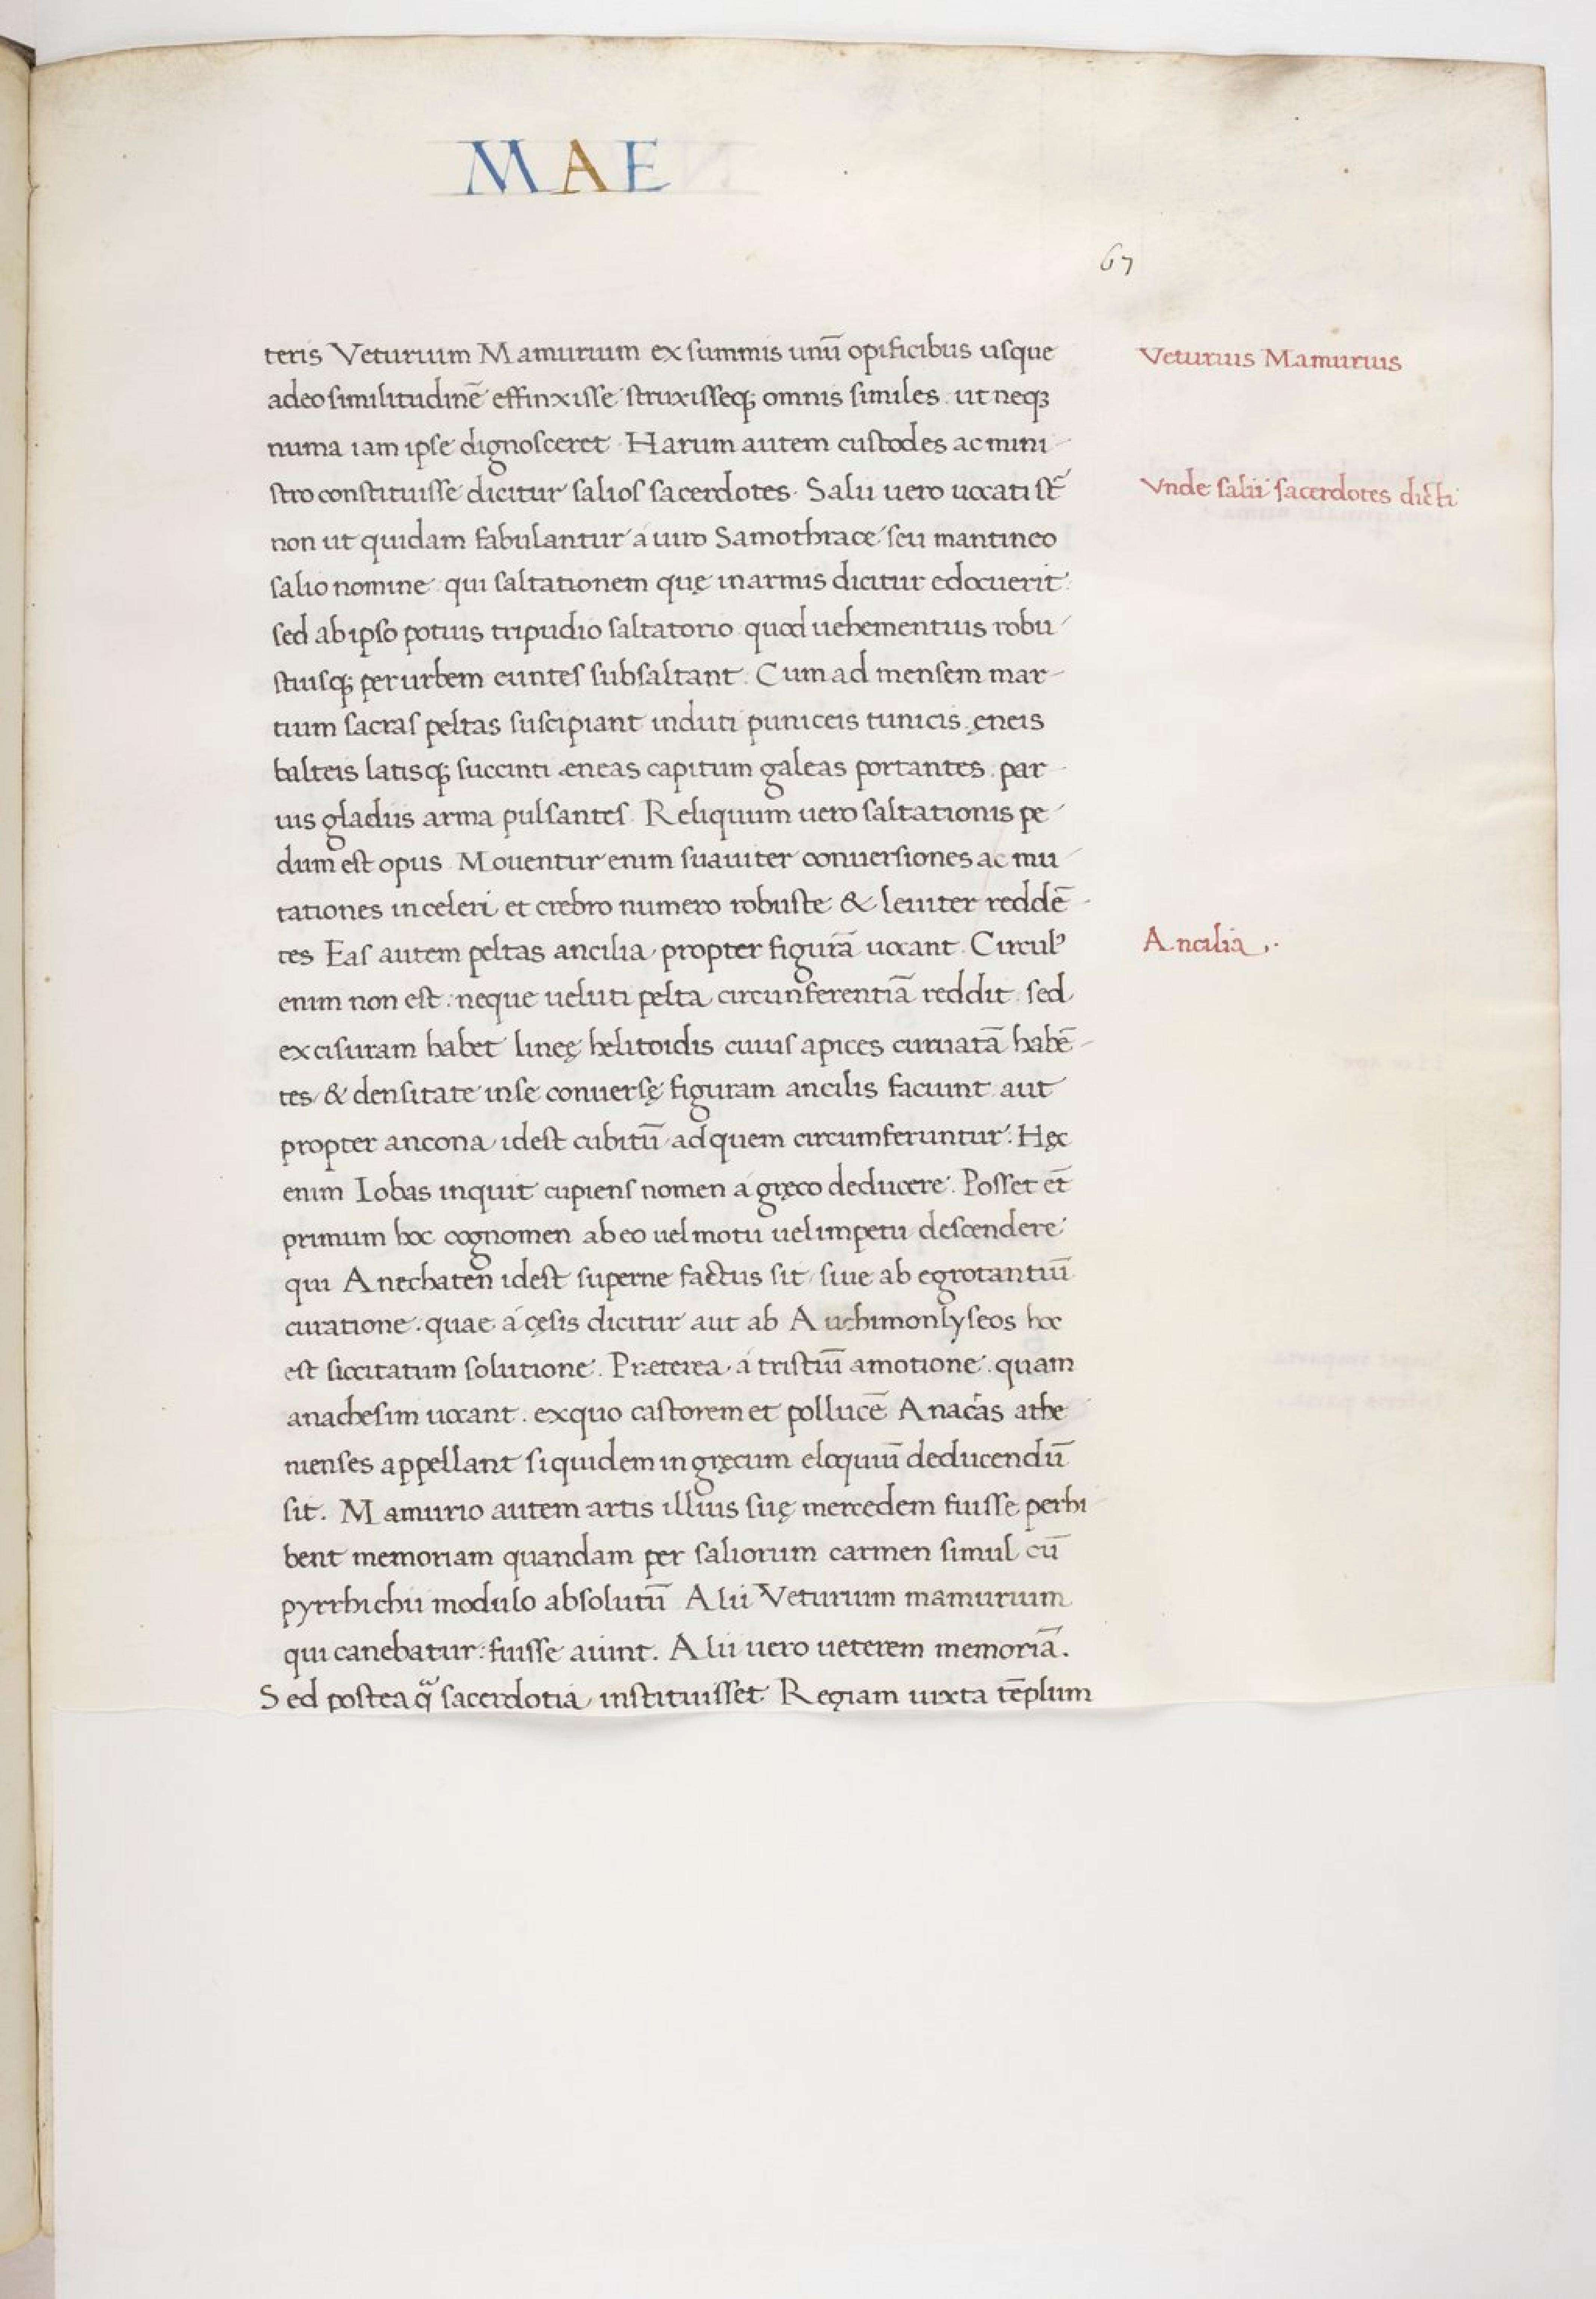 MAE
67
teris Veturium Mamurium ex summis unū opificibus usque
Veturius Mamurius
adeo similitudinē effinxisse struxisseq; omnis similes. ut neqȝ
numa iam ipse dignosceret. Harum autem custodes ac mini-
stro constituisse dicitur salios sacerdotes. Salii uero uocati st̄
Vnde salii sacerdotes dicti
non ut quidam fabulantur á uiro Samothrace seu mantineo
salio nomine qui saltationem quę in armis dicitur edocuerit:
sed ab ipso potius tripudio saltatorio quod uehementius robu-
stiusq; per urbem euntes subsaltant. Cum ad mensem mar-
tium sacras peltas suscipiant induti puniceis tunicis ęneis
balteis latisq; succinti æneas capitum galeas portantes. par-
uis gladiis arma pulsantes. Reliquum uero saltationis pe-
dum est opus. Mouentur enim suauiter conuersiones ac mu-
tationes in celeri et crebro numero robuste & leuiter reddē-
tes. Eas autem peltas ancilia propter figurā uocant. Circul᾽
Ancilia
enim non est: neque ueluti pelta circunferentiā reddit. sed
excisuram habet lineę helitoidis cuius apices curuatā habē-
tes & densitate in se conuersę figuram ancilis faciunt. aut
propter ancona idest cubitū ad quem circumferuntur. Hęc
enim Iobas inquit cupiens nomen a gręco deducere. Posset et̄
primum hoc cognomen ab eo uel motu uel impetu descendere
qui Anechaten idest superne factus sit siue ab egrotantiū
curatione. quae á cęsis dicitur aut ab Auchimonlyseos hoc
est siccitatum solutione. Præterea a tristiū amotione. quam
anachesim uocant. ex quo castorem et pollucē Anacas athe
nienses appellant siquidem in gręcum eloquiū deducendū
sit. Mamurio autem artis illius suę mercedem fuisse perhi
bent memoriam quandam per saliorum carmen simul cū
pyrrhichii modulo absolutū. Alii Veturium mamurium
qui canebatur: fuisse aiunt. Alii uero ueterem memoriā.
Sed postea q̈ sacerdotia instituisset. Regiam iuxta tēplum